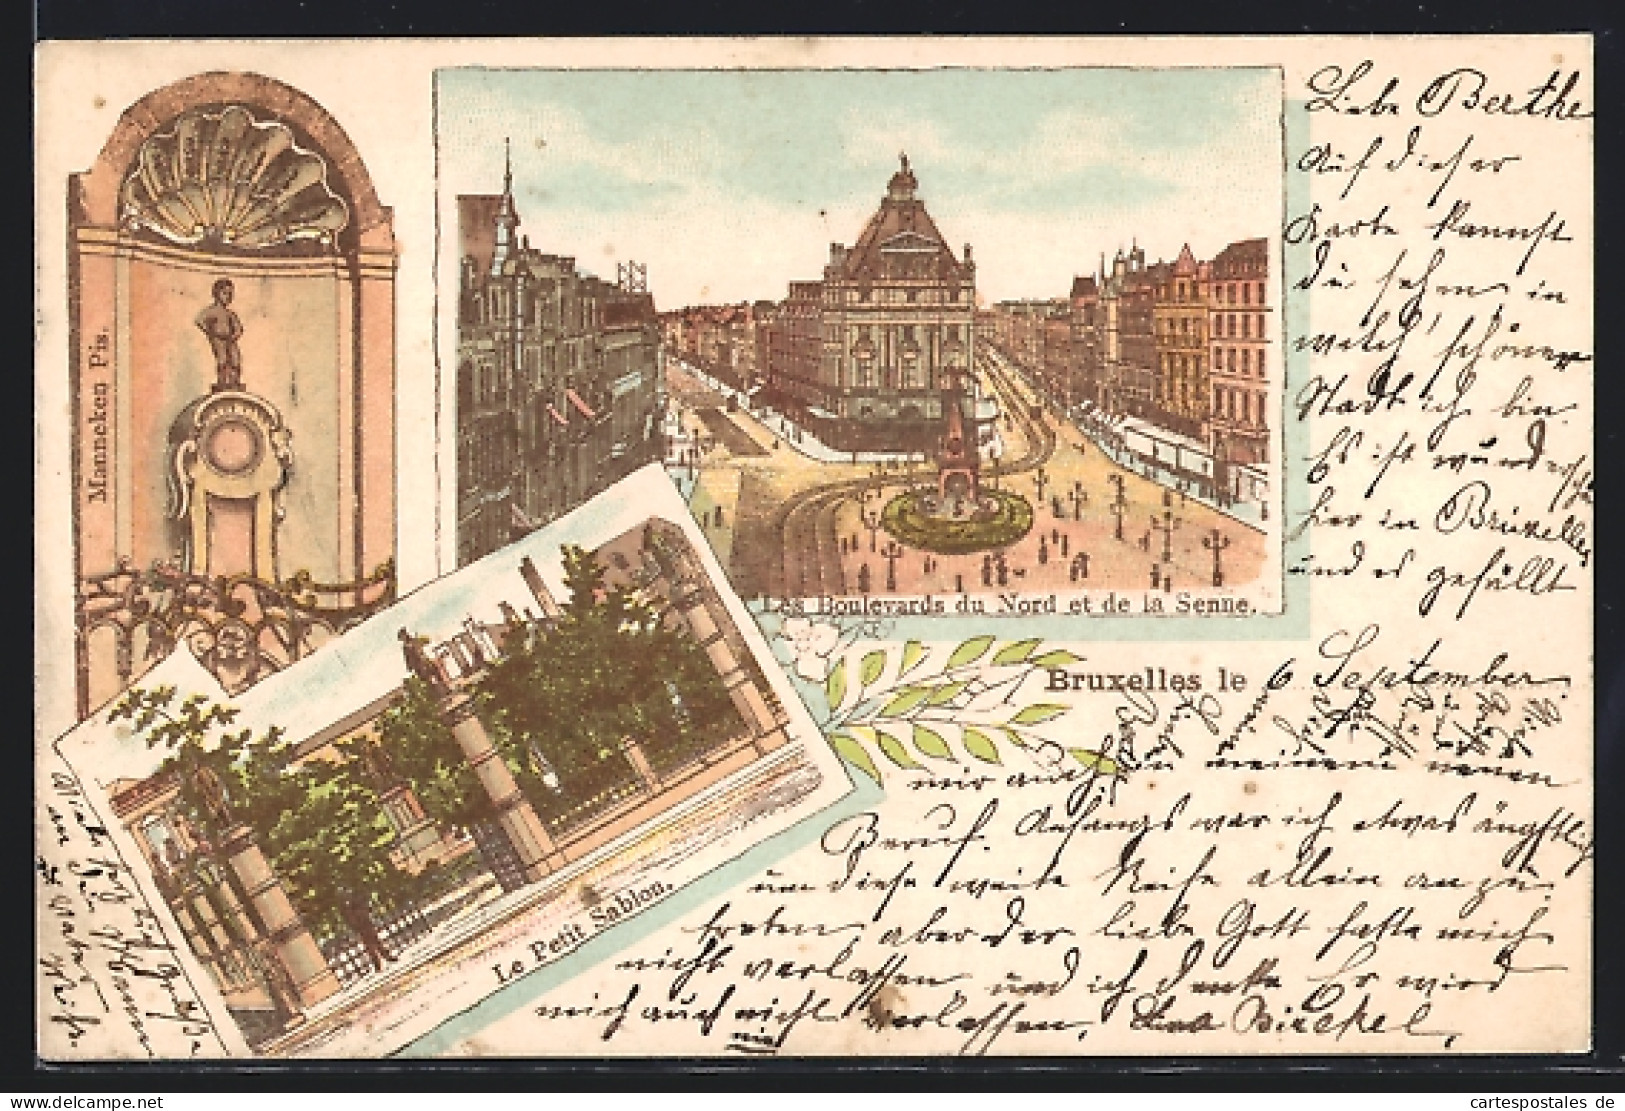 Manneken Pis.
Les Boulevards du Nord et de la Senne.
Le Petit Sablon.
Liebe Berthe
Auf dieser
Karte kannst
du sehen, in
welch' schöner
Stadt ich bin.
Es ist wundersch
hier in Brüxelles
und es gefällt
Bruxelles le 6 September.
mir auch in meinem neuen
Beruf. Anfangs war ich etwas ängstlich
um diese weite Reise allein anzu-
treten, aber der liebe Gott hatte mich
nicht verlassen, und ich denke Er wird
mich auch nicht verlassen,
nie
cartespostales de